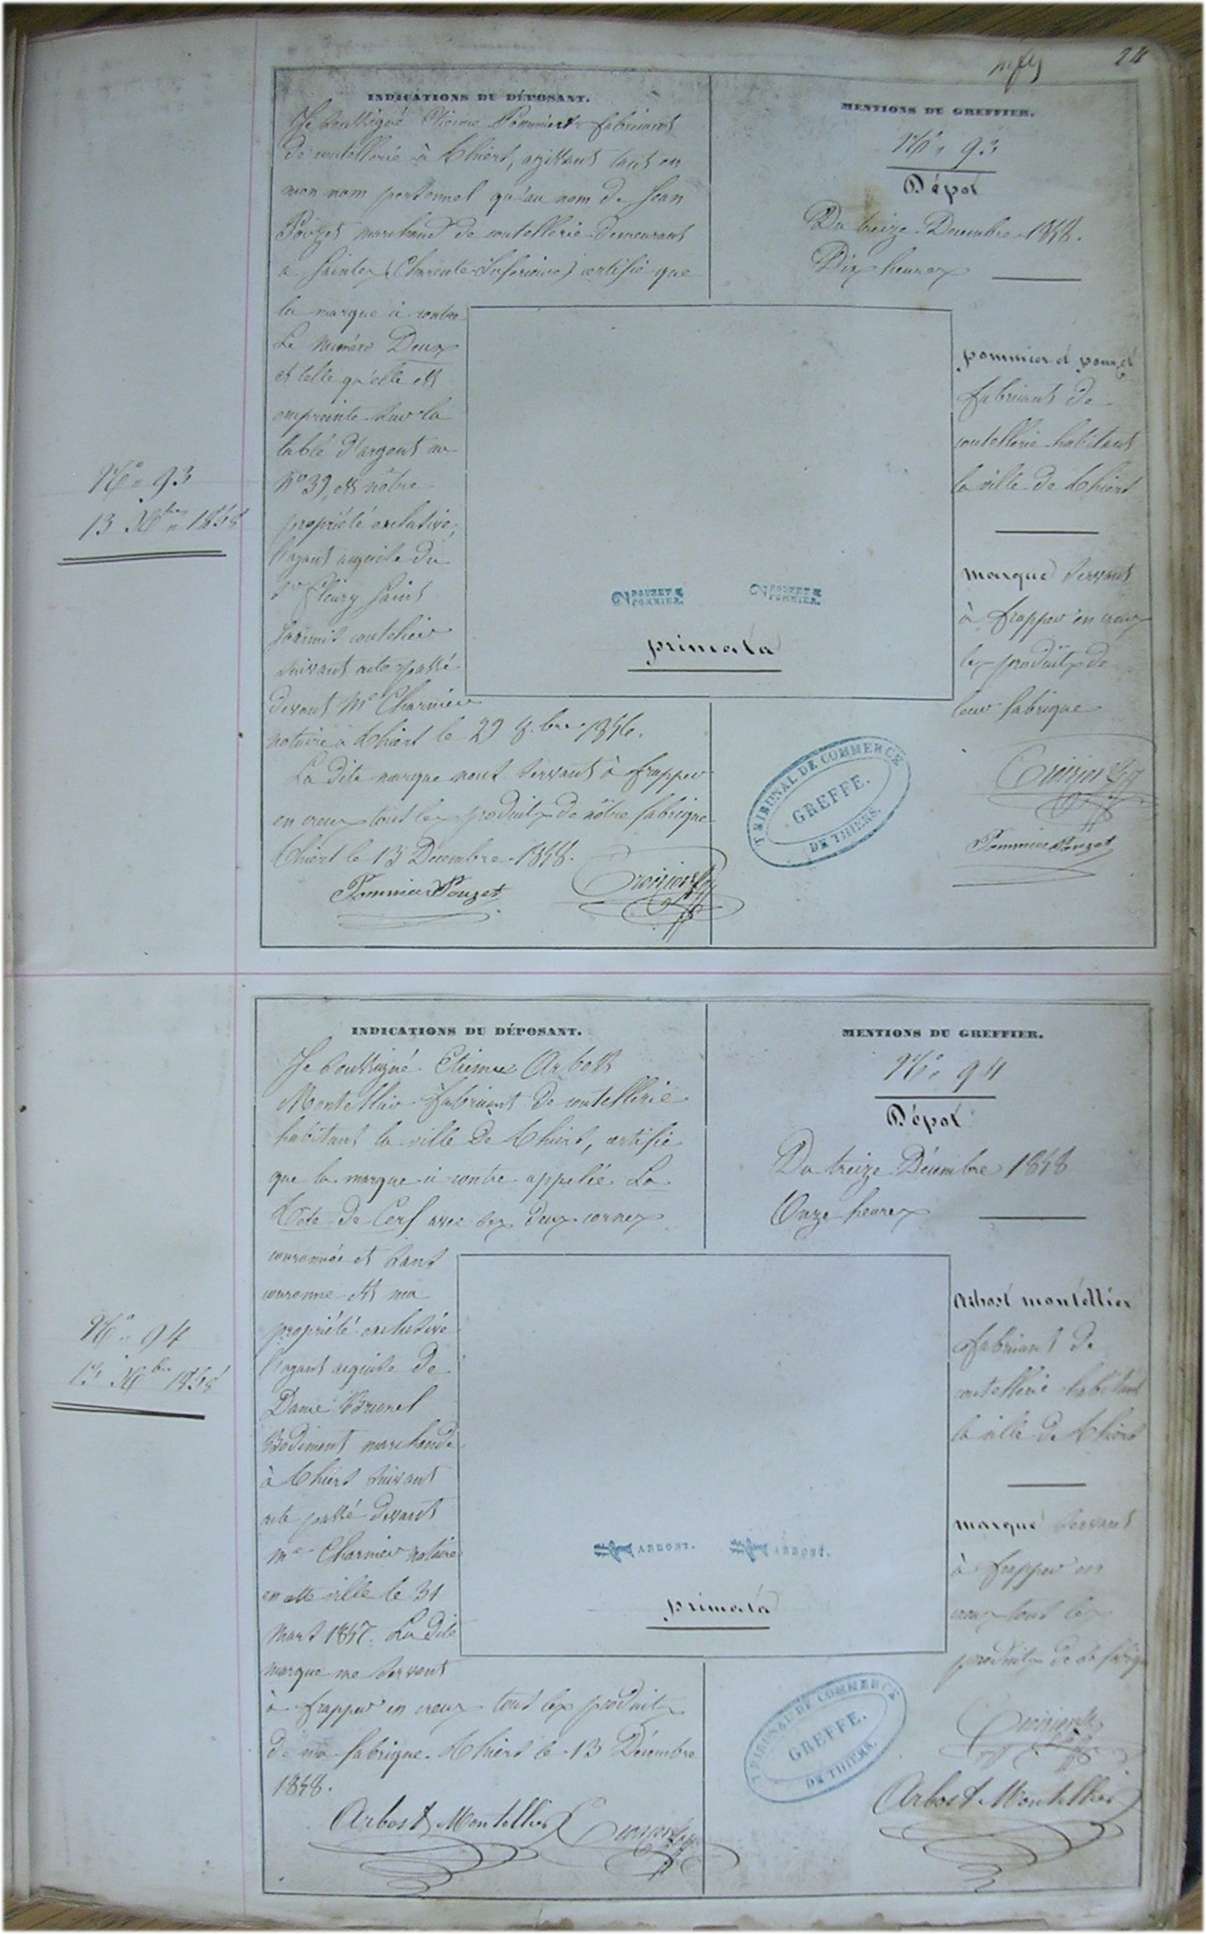 24
INDICATIONS DU DÉPOSANT.
Je soussigné Etienne Pommier fabricant
de coutellerie à Thiers, agissant tant en
mon nom personnel qu'au nom de Jean
Pouzet marchand de coutellerie demeurant
à Saintes (Charente Inférieure) certifie que
la marque ci contre
Le Numéro Deux
et telle qu'elle est
empreinte sur la
table d'argent au
No 39, est nôtre
propriété exclusive,
l'ayant acquise du
Sr Fleury Saint
coutelier
suivant acte passé
devant Me Charmier
notaire à Thiers le 29 8.bre 1856.
La dite marque nous servant à frapper
en creux tous les produits de nôtre fabrique
Thiers le 13 Decembre 1858.
Pommier Pouzet
MENTIONS DU GREFFIER.
No. 93
Dépot
Du treize Decembre 1858.
Dix heures
pommier et pouzet
fabricants de
coutellerie habitant
la ville de Thiers
marque servant
à frapper en creux
les produits de
leur fabrique
Pommier Pouzet
2 POUZET &
POMMIER.
2 POUZET &
POMMIER.
primata
TRIBUNAL DE COMMERCE
GREFFE.
DE THIERS.
No. 93
13 Xbre 1858
INDICATIONS DU DÉPOSANT.
Je soussigné Etienne Arbost
Montellier fabricant de coutellerie
habitant la ville de Thiers, certifie
que la marque ci contre appelée La
Tete de Cerf avec ses deux cornes
couronnée et sans
couronne est ma
propriété exclusive
l'ayant acquise de
Dame Brunel
Bodiment marchande
à Thiers suivant
acte passé devant
Me Charmier notaire
en cette ville le 31
Mars 1857. La dite
marque me servant
à frapper en creux tous les produits
de ma fabrique. Thiers le 13 Décembre
1858.
Arbost Montellier
MENTIONS DU GREFFIER.
No. 94
Dépot
Du treize Décembre 1858
Onze heures
Arbost montellier
fabricant de
coutellerie habitant
la ville de Thiers
marque servant
à frapper en
creux tous les
produits de sa fabrique
Arbost Montellier
ARBOST.
ARBOST.
primata
TRIBUNAL DE COMMERCE
GREFFE.
DE THIERS.
No. 94
13 Xbre 1858